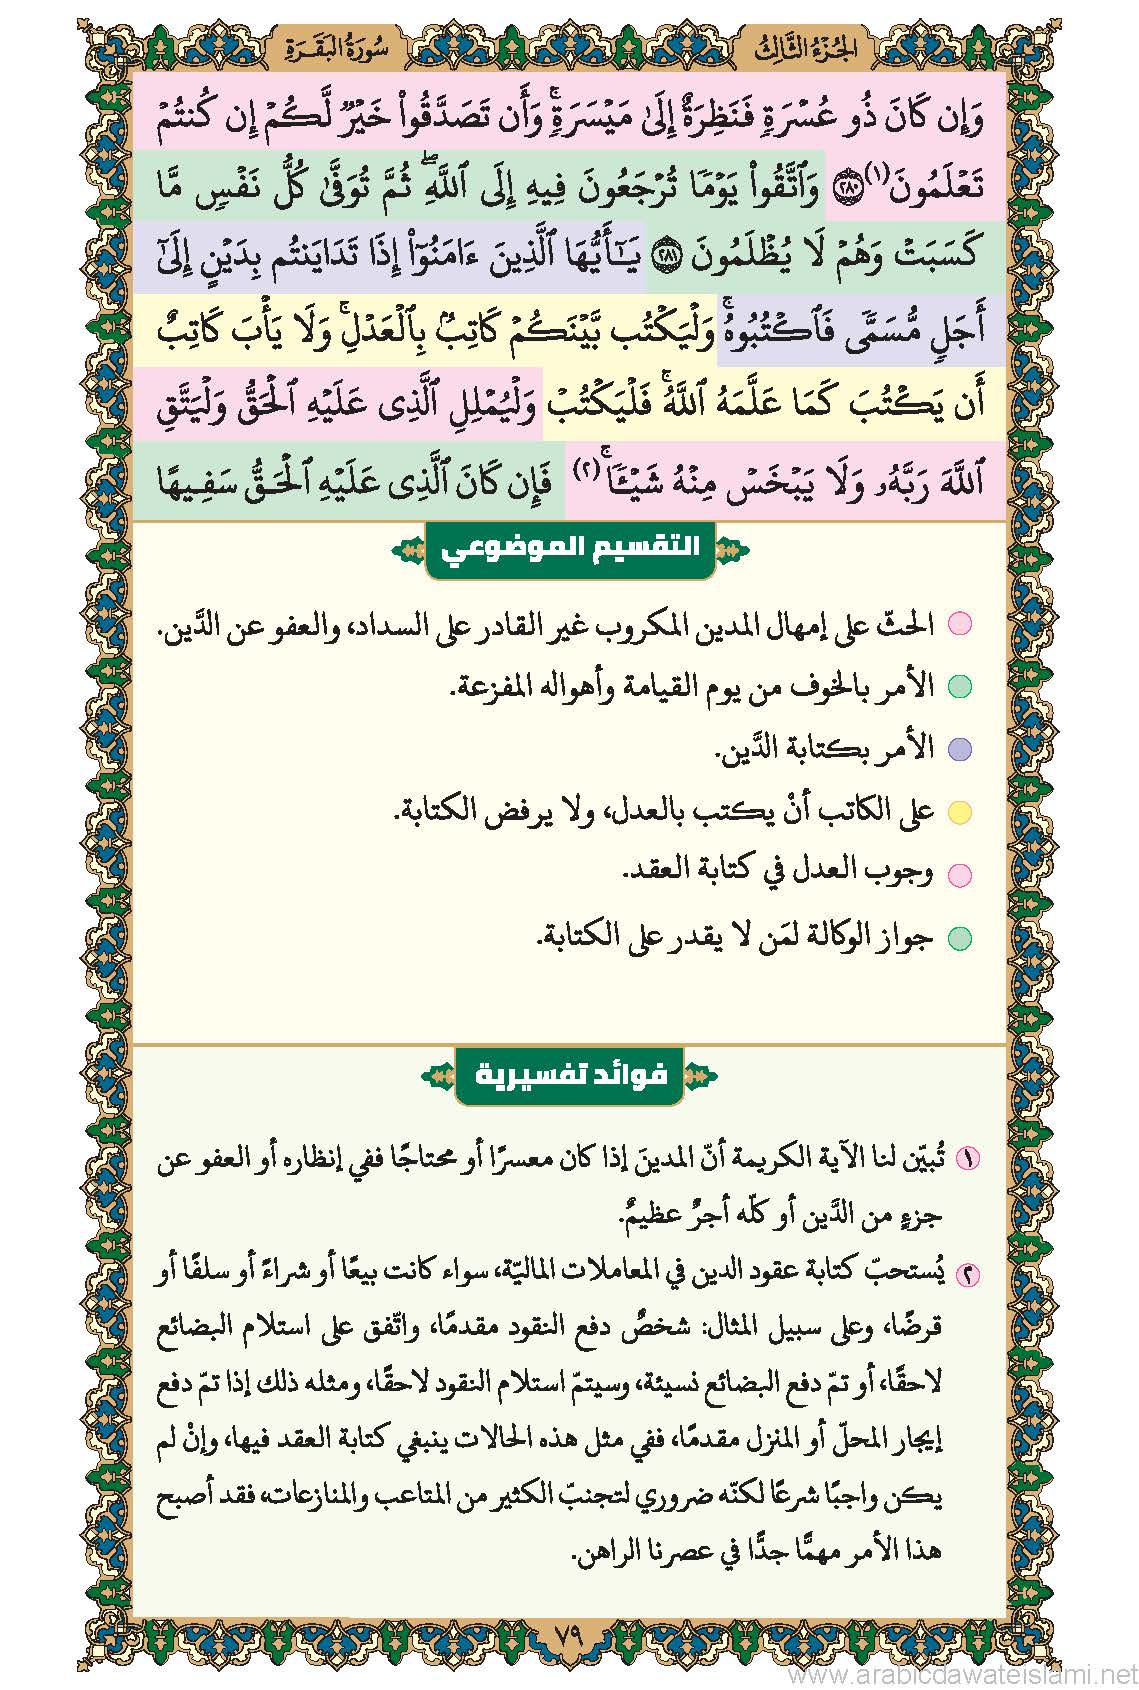 الجُزْءُ الثَّالِثُ
سُورَةُ البَقَرَةِ
وَإِن كَانَ ذُو عُسْرَةٖ فَنَظِرَةٌ إِلَىٰ مَيْسَرَةٖۚ وَأَن تَصَدَّقُواْ خَيْرٞ لَّكُمْ إِن كُنتُمْ
تَعْلَمُونَ(١) ٢٨٠ وَٱتَّقُواْ يَوْمٗا تُرْجَعُونَ فِيهِ إِلَى ٱللَّهِۖ ثُمَّ تُوَفَّىٰ كُلُّ نَفْسٖ مَّا
كَسَبَتْ وَهُمْ لَا يُظْلَمُونَ ٢٨١ يَـٰٓأَيُّهَا ٱلَّذِينَ ءَامَنُوٓاْ إِذَا تَدَايَنتُم بِدَيْنٍ إِلَىٰٓ
أَجَلٖ مُّسَمّٗى فَٱكْتُبُوهُۚ وَلْيَكْتُب بَّيْنَكُمْ كَاتِبُۢ بِٱلْعَدْلِۚ وَلَا يَأْبَ كَاتِبٌ
أَن يَكْتُبَ كَمَا عَلَّمَهُ ٱللَّهُۚ فَلْيَكْتُبْ وَلْيُمْلِلِ ٱلَّذِى عَلَيْهِ ٱلْحَقُّ وَلْيَتَّقِ
ٱللَّهَ رَبَّهُۥ وَلَا يَبْخَسْ مِنْهُ شَيْـٔٗاۚ(٢) فَإِن كَانَ ٱلَّذِى عَلَيْهِ ٱلْحَقُّ سَفِيهًا
التقسيم الموضوعي
الحثّ على إمهال المدين المكروب غير القادر على السداد، والعفو عن الدَّين.
الأمر بالخوف من يوم القيامة وأهواله المفزعة.
الأمر بكتابة الدَّين.
على الكاتب أنْ يكتب بالعدل، ولا يرفض الكتابة.
وجوب العدل في كتابة العقد.
جواز الوكالة لمَن لا يقدر على الكتابة.
فوائد تفسيرية
١ تُبيّن لنا الآية الكريمة أنّ المدينَ إذا كان معسرًا أو محتاجًا ففي إنظاره أو العفو عن
جزءٍ من الدَّين أو كلّه أجرٌ عظيمٌ.
٢ يُستحبّ كتابة عقود الدين في المعاملات الماليّة، سواء كانت بيعًا أو شراءً أو سلفًا أو
قرضًا، وعلى سبيل المثال: شخصٌ دفع النقود مقدمًا، واتّفق على استلام البضائع
لاحقًا، أو تمّ دفع البضائع نسيئة، وسيتمّ استلام النقود لاحقًا، ومثله ذلك إذا تمّ دفع
إيجار المحلّ أو المنزل مقدمًا، ففي مثل هذه الحالات ينبغي كتابة العقد فيها، وإنْ لم
يكن واجبًا شرعًا لكنّه ضروري لتجنبّ الكثير من المتاعب والمنازعات، فقد أصبح
هذا الأمر مهمًّا جدًّا في عصرنا الراهن.
٧٩
www.arabicdawateislami.net